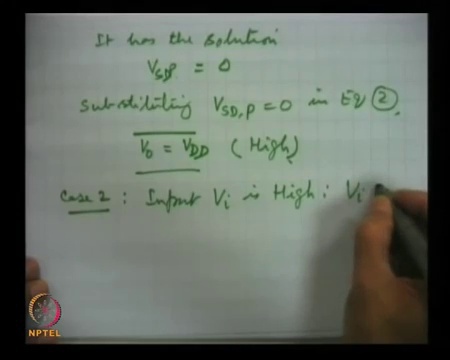 It has the solution
V_SDP = 0
Substituting V_SD,P = 0 in Eq (2),
V_0 = V_DD (High)
Case 2 : Input V_i is High : V_i
NPTEL